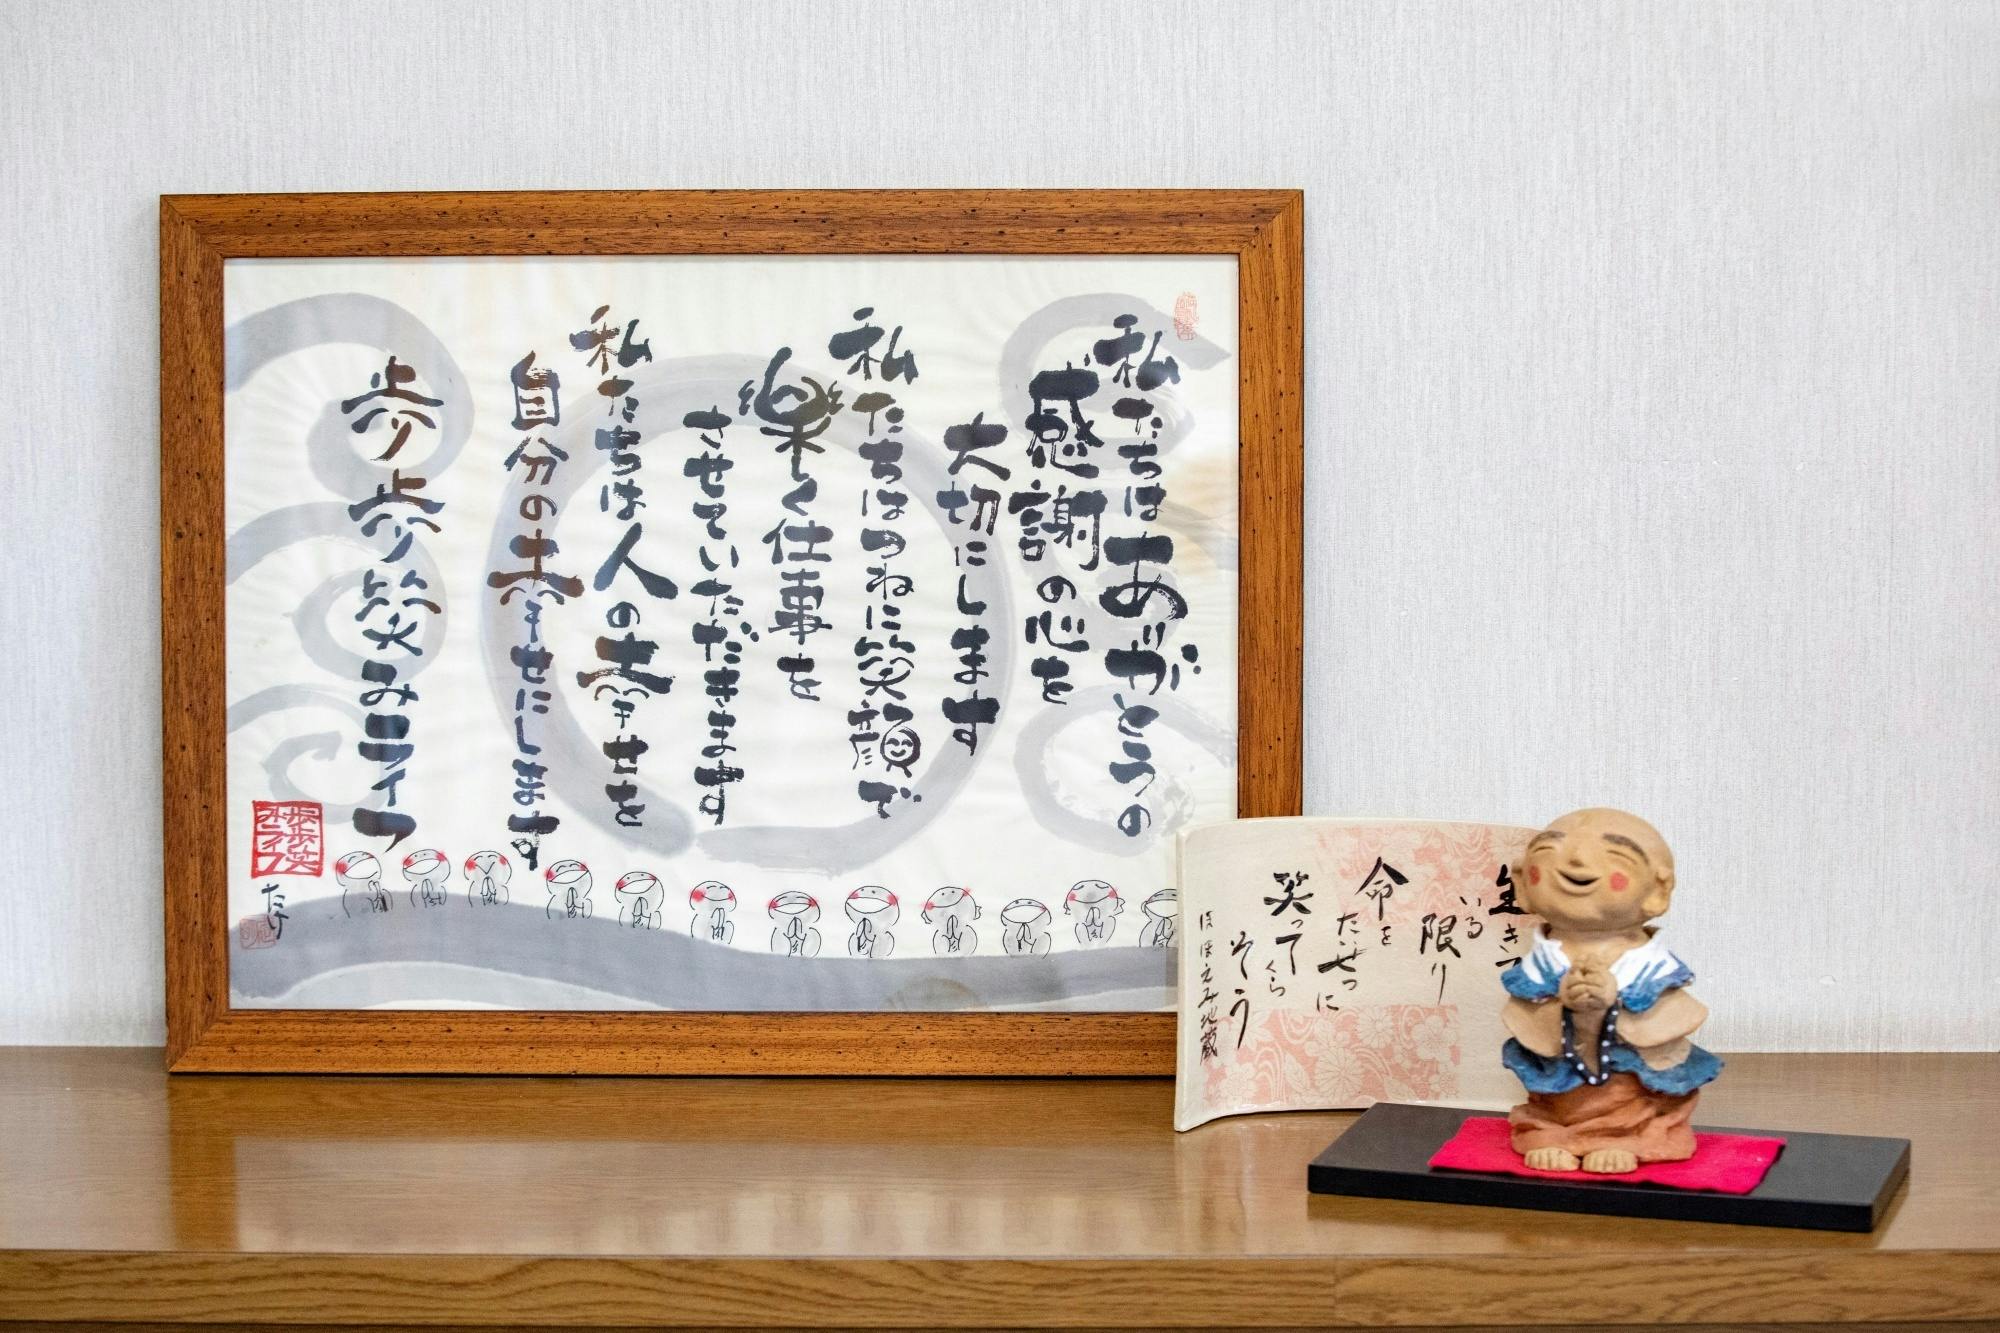 私たちはありがとうの
感謝の心を
大切にします
私たちはつねに笑顔で
楽しく仕事を
させていただきます
私たちは人の幸せを
自分の幸せにします
歩歩笑みライフ
歩歩笑
みライフ
たけ
生きて
いる
限り
命を
たいせつに
笑って
くら
そう
ほほえみ地蔵